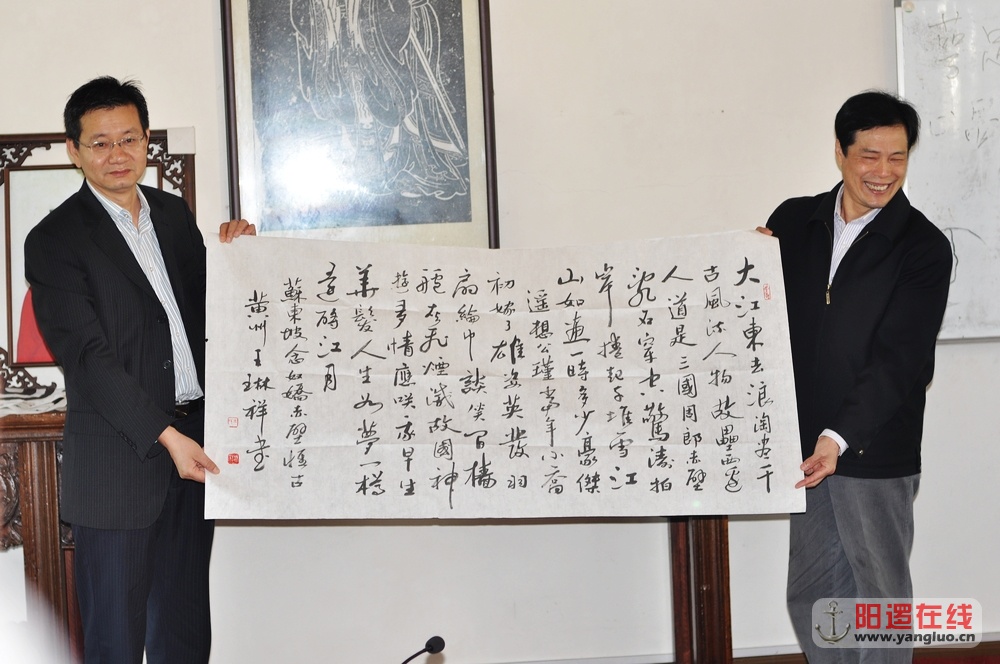 大江東去浪淘盡千
古風流人物故壘西邊
人道是三國周郎赤壁
亂石穿空驚濤拍
岸捲起千堆雪江
山如畫一時多少豪傑
遙想公瑾當年小喬
初嫁了雄姿英發羽
扇綸巾談笑間檣
艣灰飛煙滅故國神
遊多情應咲我早生
華髮人生如夢一樽
還酹江月
蘇東坡念奴嬌赤壁懷古
黃州王琳祥書
阳逻在线
www.yangluo.cn